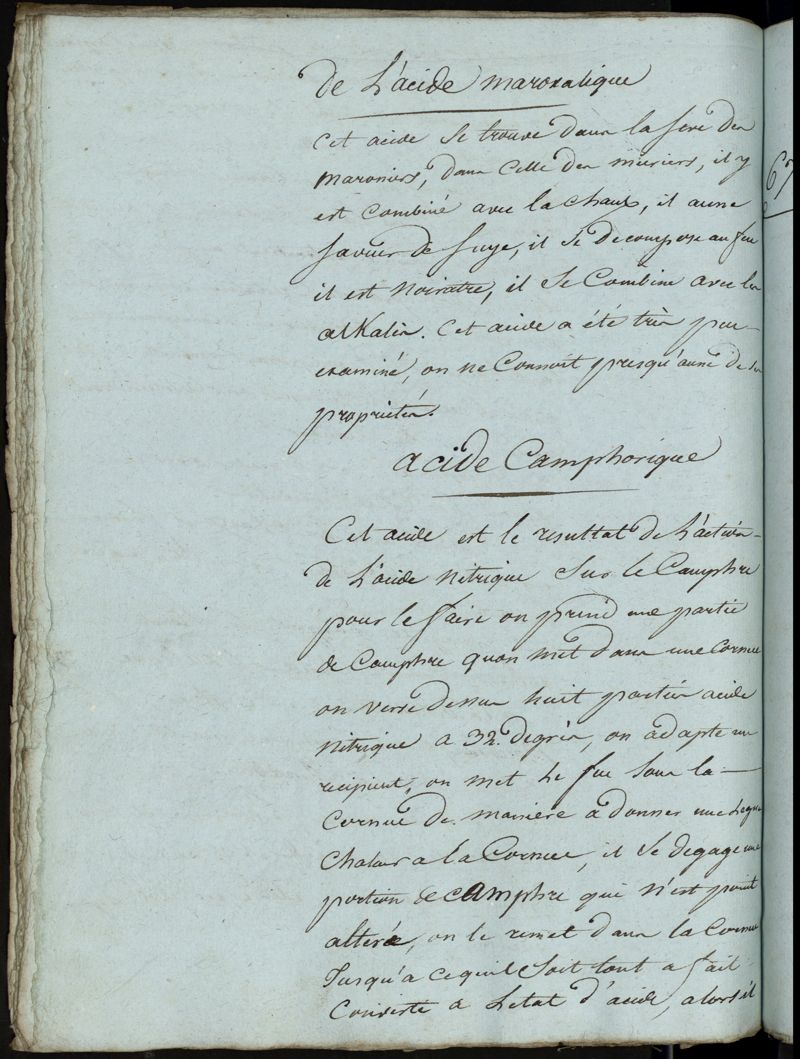 de L'acide maroxalique
Cet acide se trouve dans la seve des
maroniers, dans celle des muriers, il y
est Combiné avec la chaux, il a une
saveur de suye, il se decompose au feu
il est noiratre, il se Combine avec les
alKalis. Cet acide a été très peu
examiné, on ne Connoit presqu'aune de ses
proprietés.
acide Camphorique
Cet acide est le resultat de L'action
de L'acide nitrique sur le Camphre
pour le faire on prend une partie
de Camphre quon met dans une Cornue
on verse dessus huit parties acide
nitrique a 32. degrés, on adapte un
recipient, on met le feu sous la
Cornue de maniere a donner une Legere
Chaleur a la Cornue, il se degage une
portion de camphre qui n'est point
alterée, on le remet dans la Cornue
Jusqu'a ce quil soit tout a fait
Converte a Letat d'acide, alors il
67